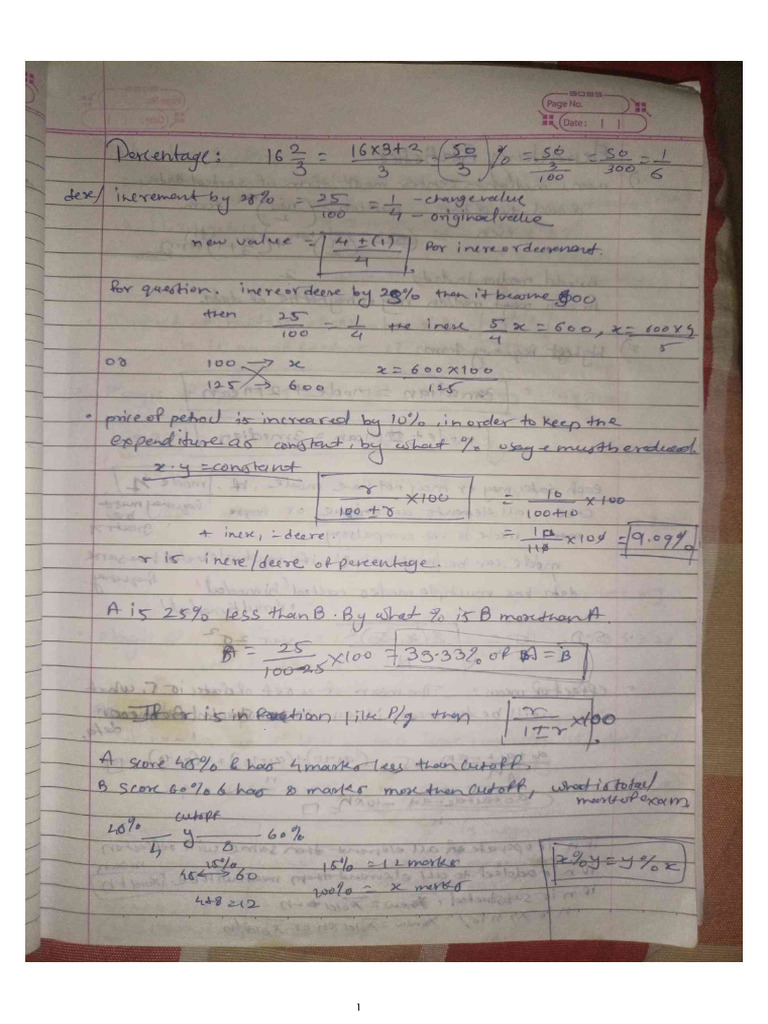 BOSS
Page No.
Date: | |
Percentage: 16 2/3 = 16×3+2/3 = (50/3)% = 50/3/100 = 50/300 = 1/6
decre/increment by 25% = 25/100 = 1/4 - change value - original value
new value = 4±(1)/4 for incre or decrement.
for question. incre or decre by 25% then it become 600
then 25/100 = 1/4 the incre 5/4 x = 600, x = 600×4/5
or 100 → x x = 600×100/125
125 → 600
• price of petrol is increased by 10%, in order to keep the
expenditure as constant, by what % usage must be reduced
x·y = constant r/100±r ×100 = 10/100+10 ×100
+ incre, - decre. = 10/110 ×100 = 9.09%
r is incre/decre of percentage.
A is 25% less than B. By what % is B more than A.
= 25/100-25 ×100 = 33.33% of A = B
If r is in fraction like p/q then r/1±r ×100
A score 45% & has 4 marks less than cutoff.
B score 60% & has 8 marks more than cutoff, what is total/
marks of exam
45% cutoff 60%
4 y 8
15%
45 ↔ 60 15% = 12 marks x%y = y%x
4+8=12 100% = x marks
1